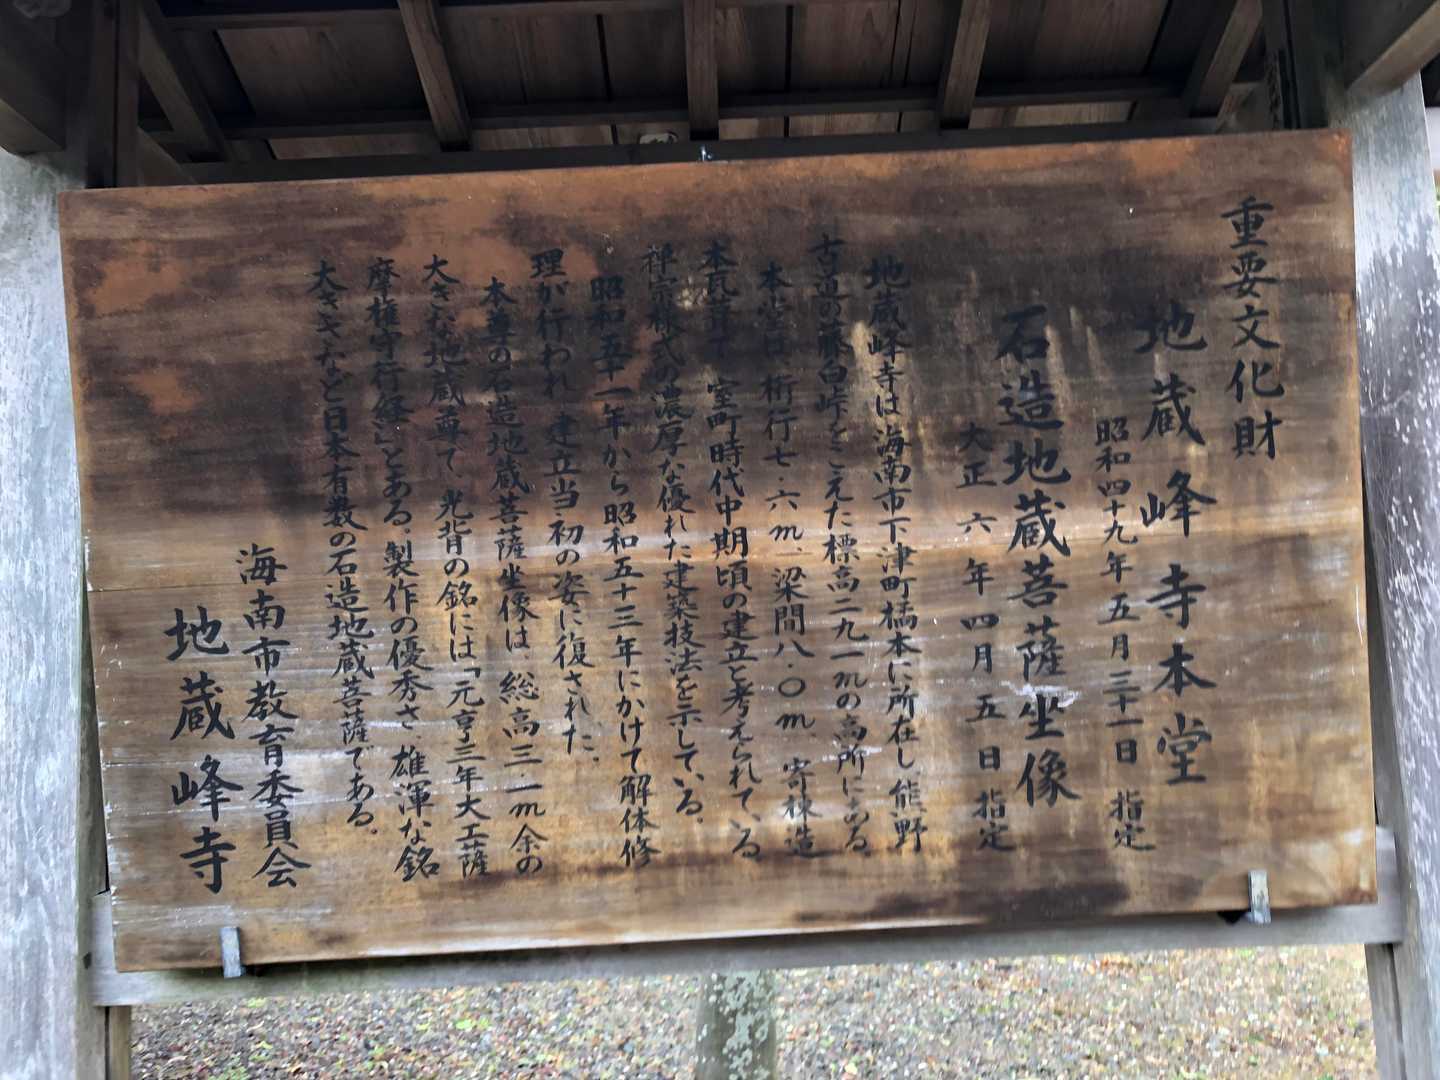 重要文化財
地蔵峰寺本堂
昭和四十九年五月三十一日 指定
石造地蔵菩薩坐像
大正 六 年 四 月 五 日 指定
地蔵峰寺は海南市下津町橘本に所在し、熊野
古道の藤白峠をこえた標高二九一mの高所にある。
本堂は 桁行七・六m、梁間八・〇m、寄棟造
本瓦葺で 室町時代中期頃の建立と考えられている
禅宗様式の濃厚な優れた建築技法を示している。
昭和五十一年から昭和五十三年にかけて解体修
理が行われ 建立当初の姿に復された。
本尊の石造地蔵菩薩坐像は、総高三・一m余の
大きな地蔵尊で 光背の銘には「元亨三年大工薩
摩権守行経」とある。製作の優秀さ 雄渾な銘
大きさなど日本有数の石造地蔵菩薩である。
海南市教育委員会
地蔵峰寺